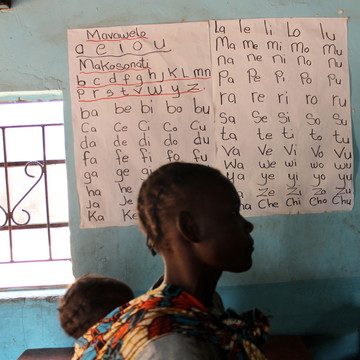 Mavawelo
a e i o u
Makosonati
b c d f g h j k L m n
p r s t v w y z
ba be bi bo bu
Ca Ce Ci Co Cu
da de di do du
fa fe fi fo fu
ga ge gi
ha he
Ja Je
Ka Ke
La le li Lo lu
Ma me mi mo Mu
Na ne ni no nu
Pa Pe Pi Po Pu
ra re ri ro ru
Sa Se Si So Su
ta te ti to tu
Va Ve Vi Vo Vu
Wa we wi wo wu
ye yi yo yu
Ze Zi Zo Zu
Cha Che Chi Cho Chu